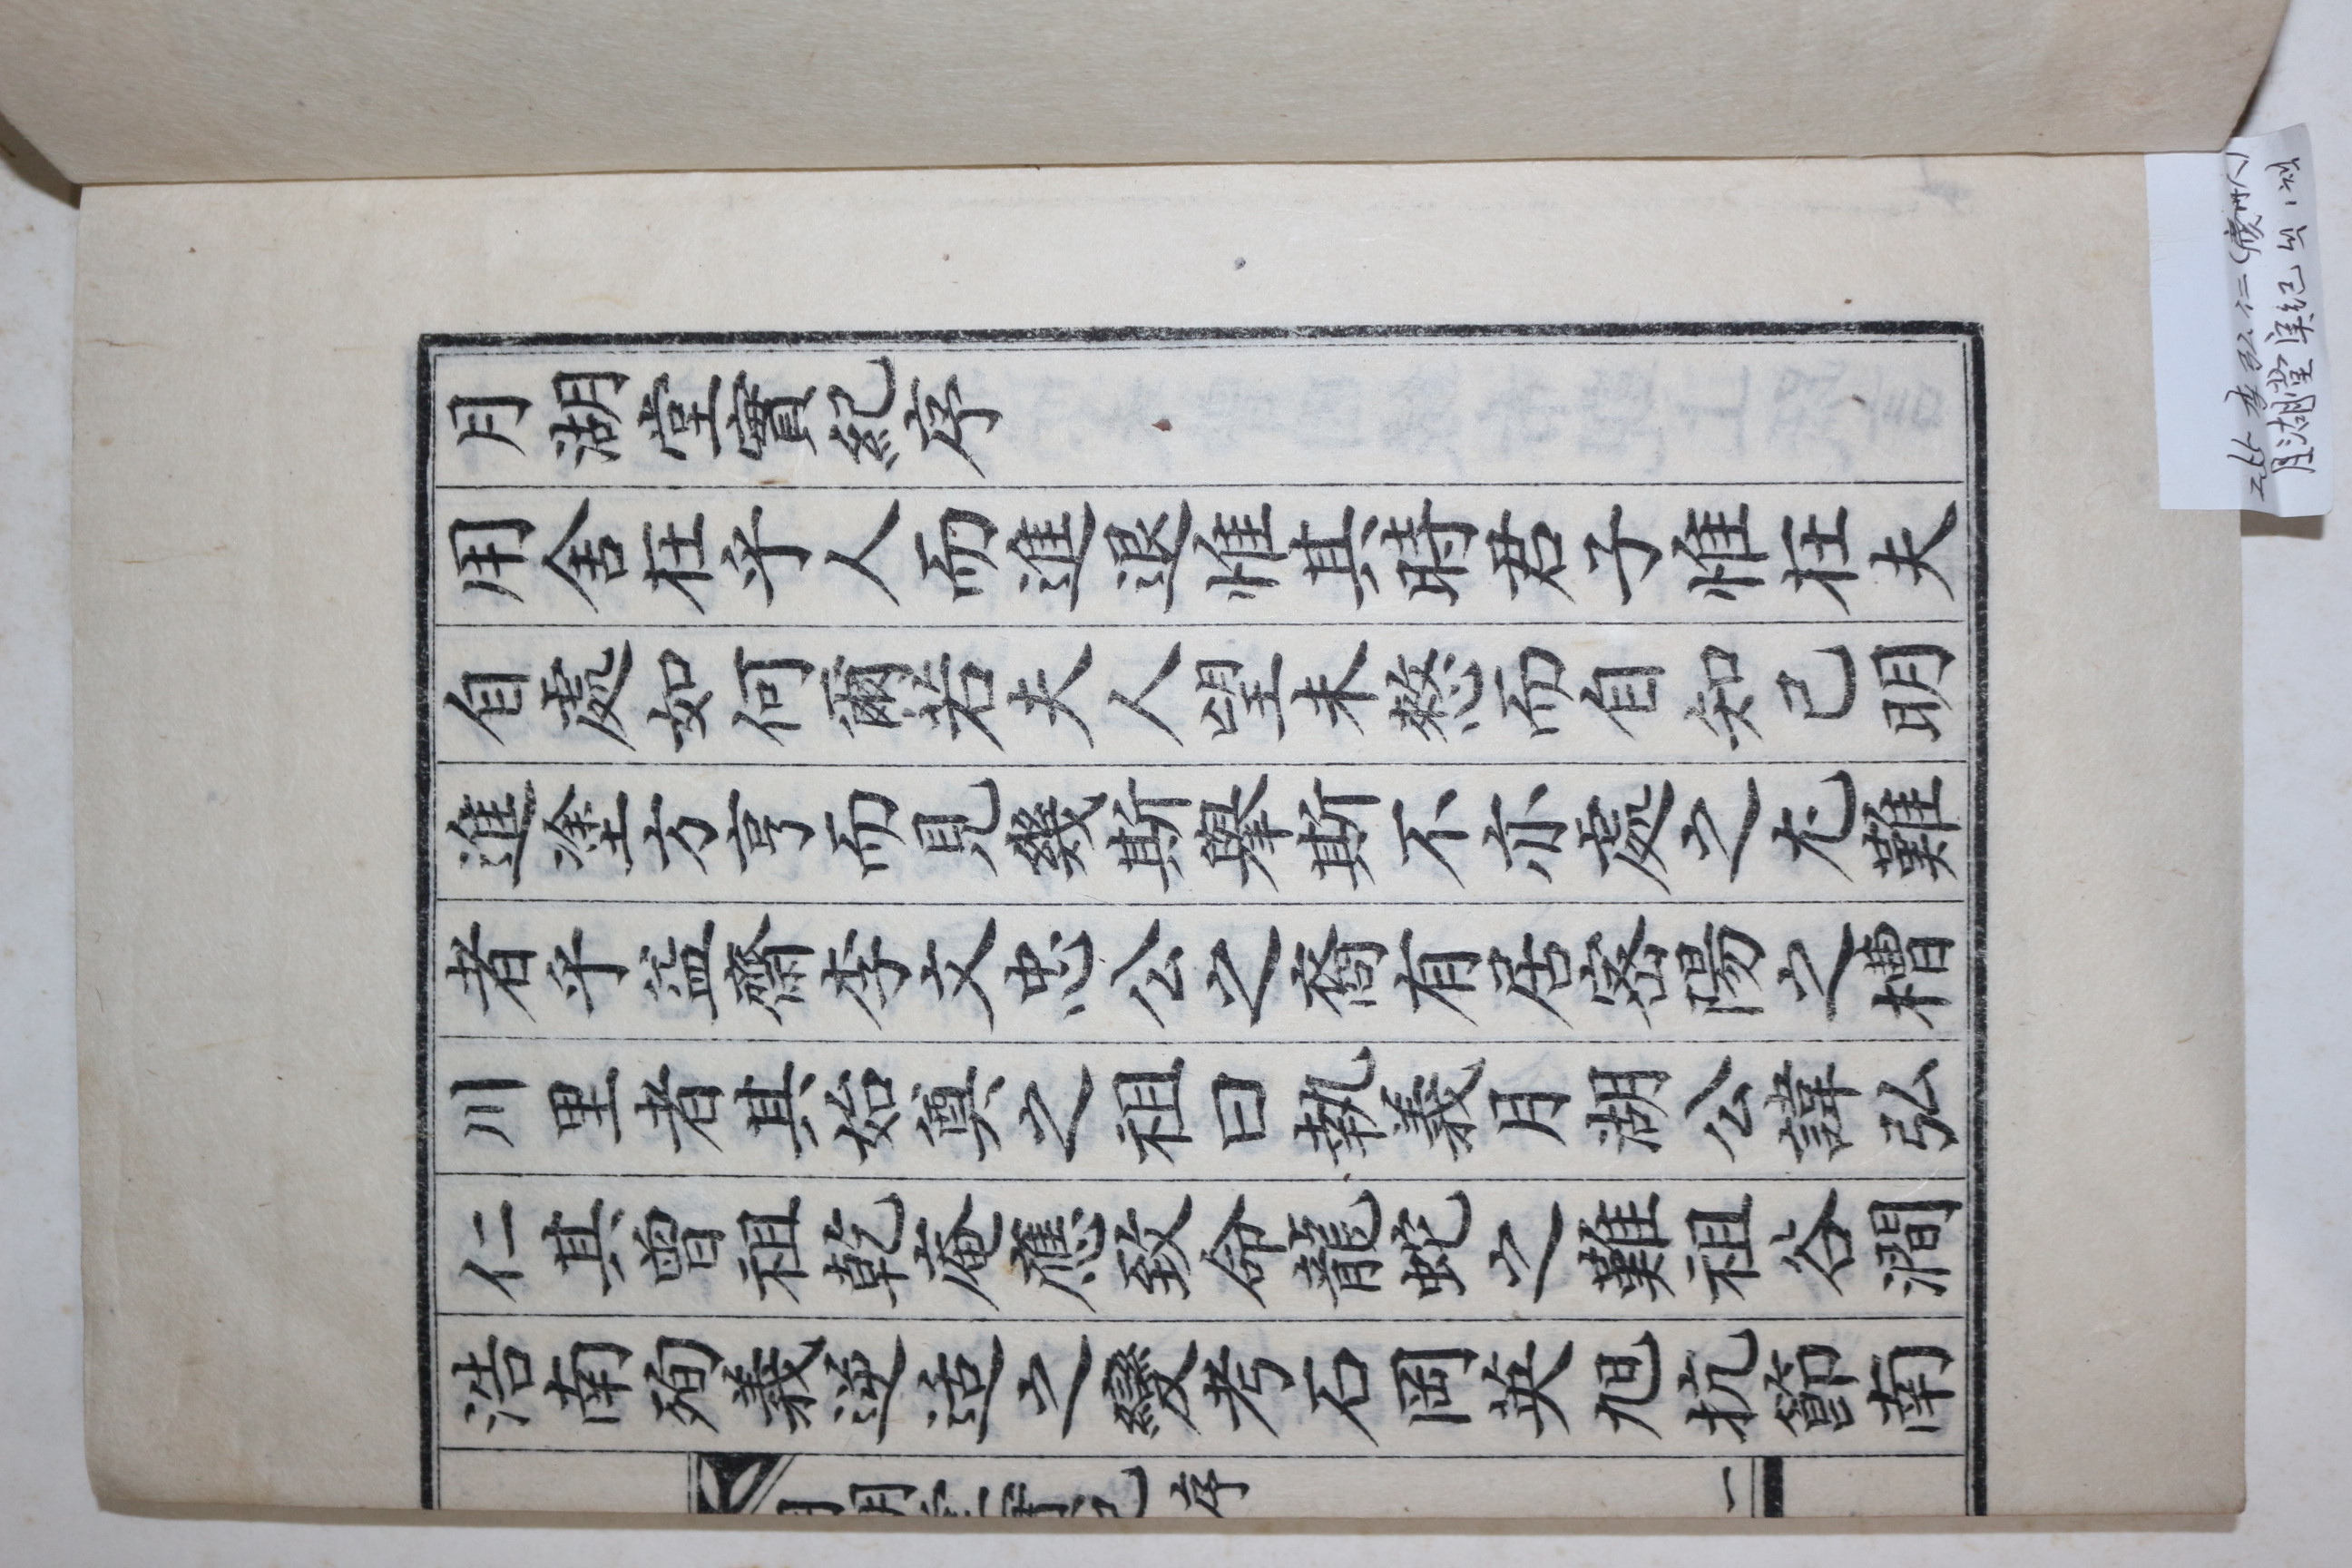 月湖堂實紀序
用舍在乎人而進退惟其時君子惟在夫
自處如何爾若夫人望未愁而自知已明
進塗方亨而見幾斯擧斯不亦處之尤難
者乎益齋李文忠公之裔有居密陽之槽
川里者其始奠之祖曰執義月湖公諱弘
仁其曾祖乾庵應致命龍蛇之難祖谷澗
浩南殉義逆适之變考石岡英旭抗節南
月湖堂實紀 序
一
255 李弘仁(慶州人)
月湖堂実紀